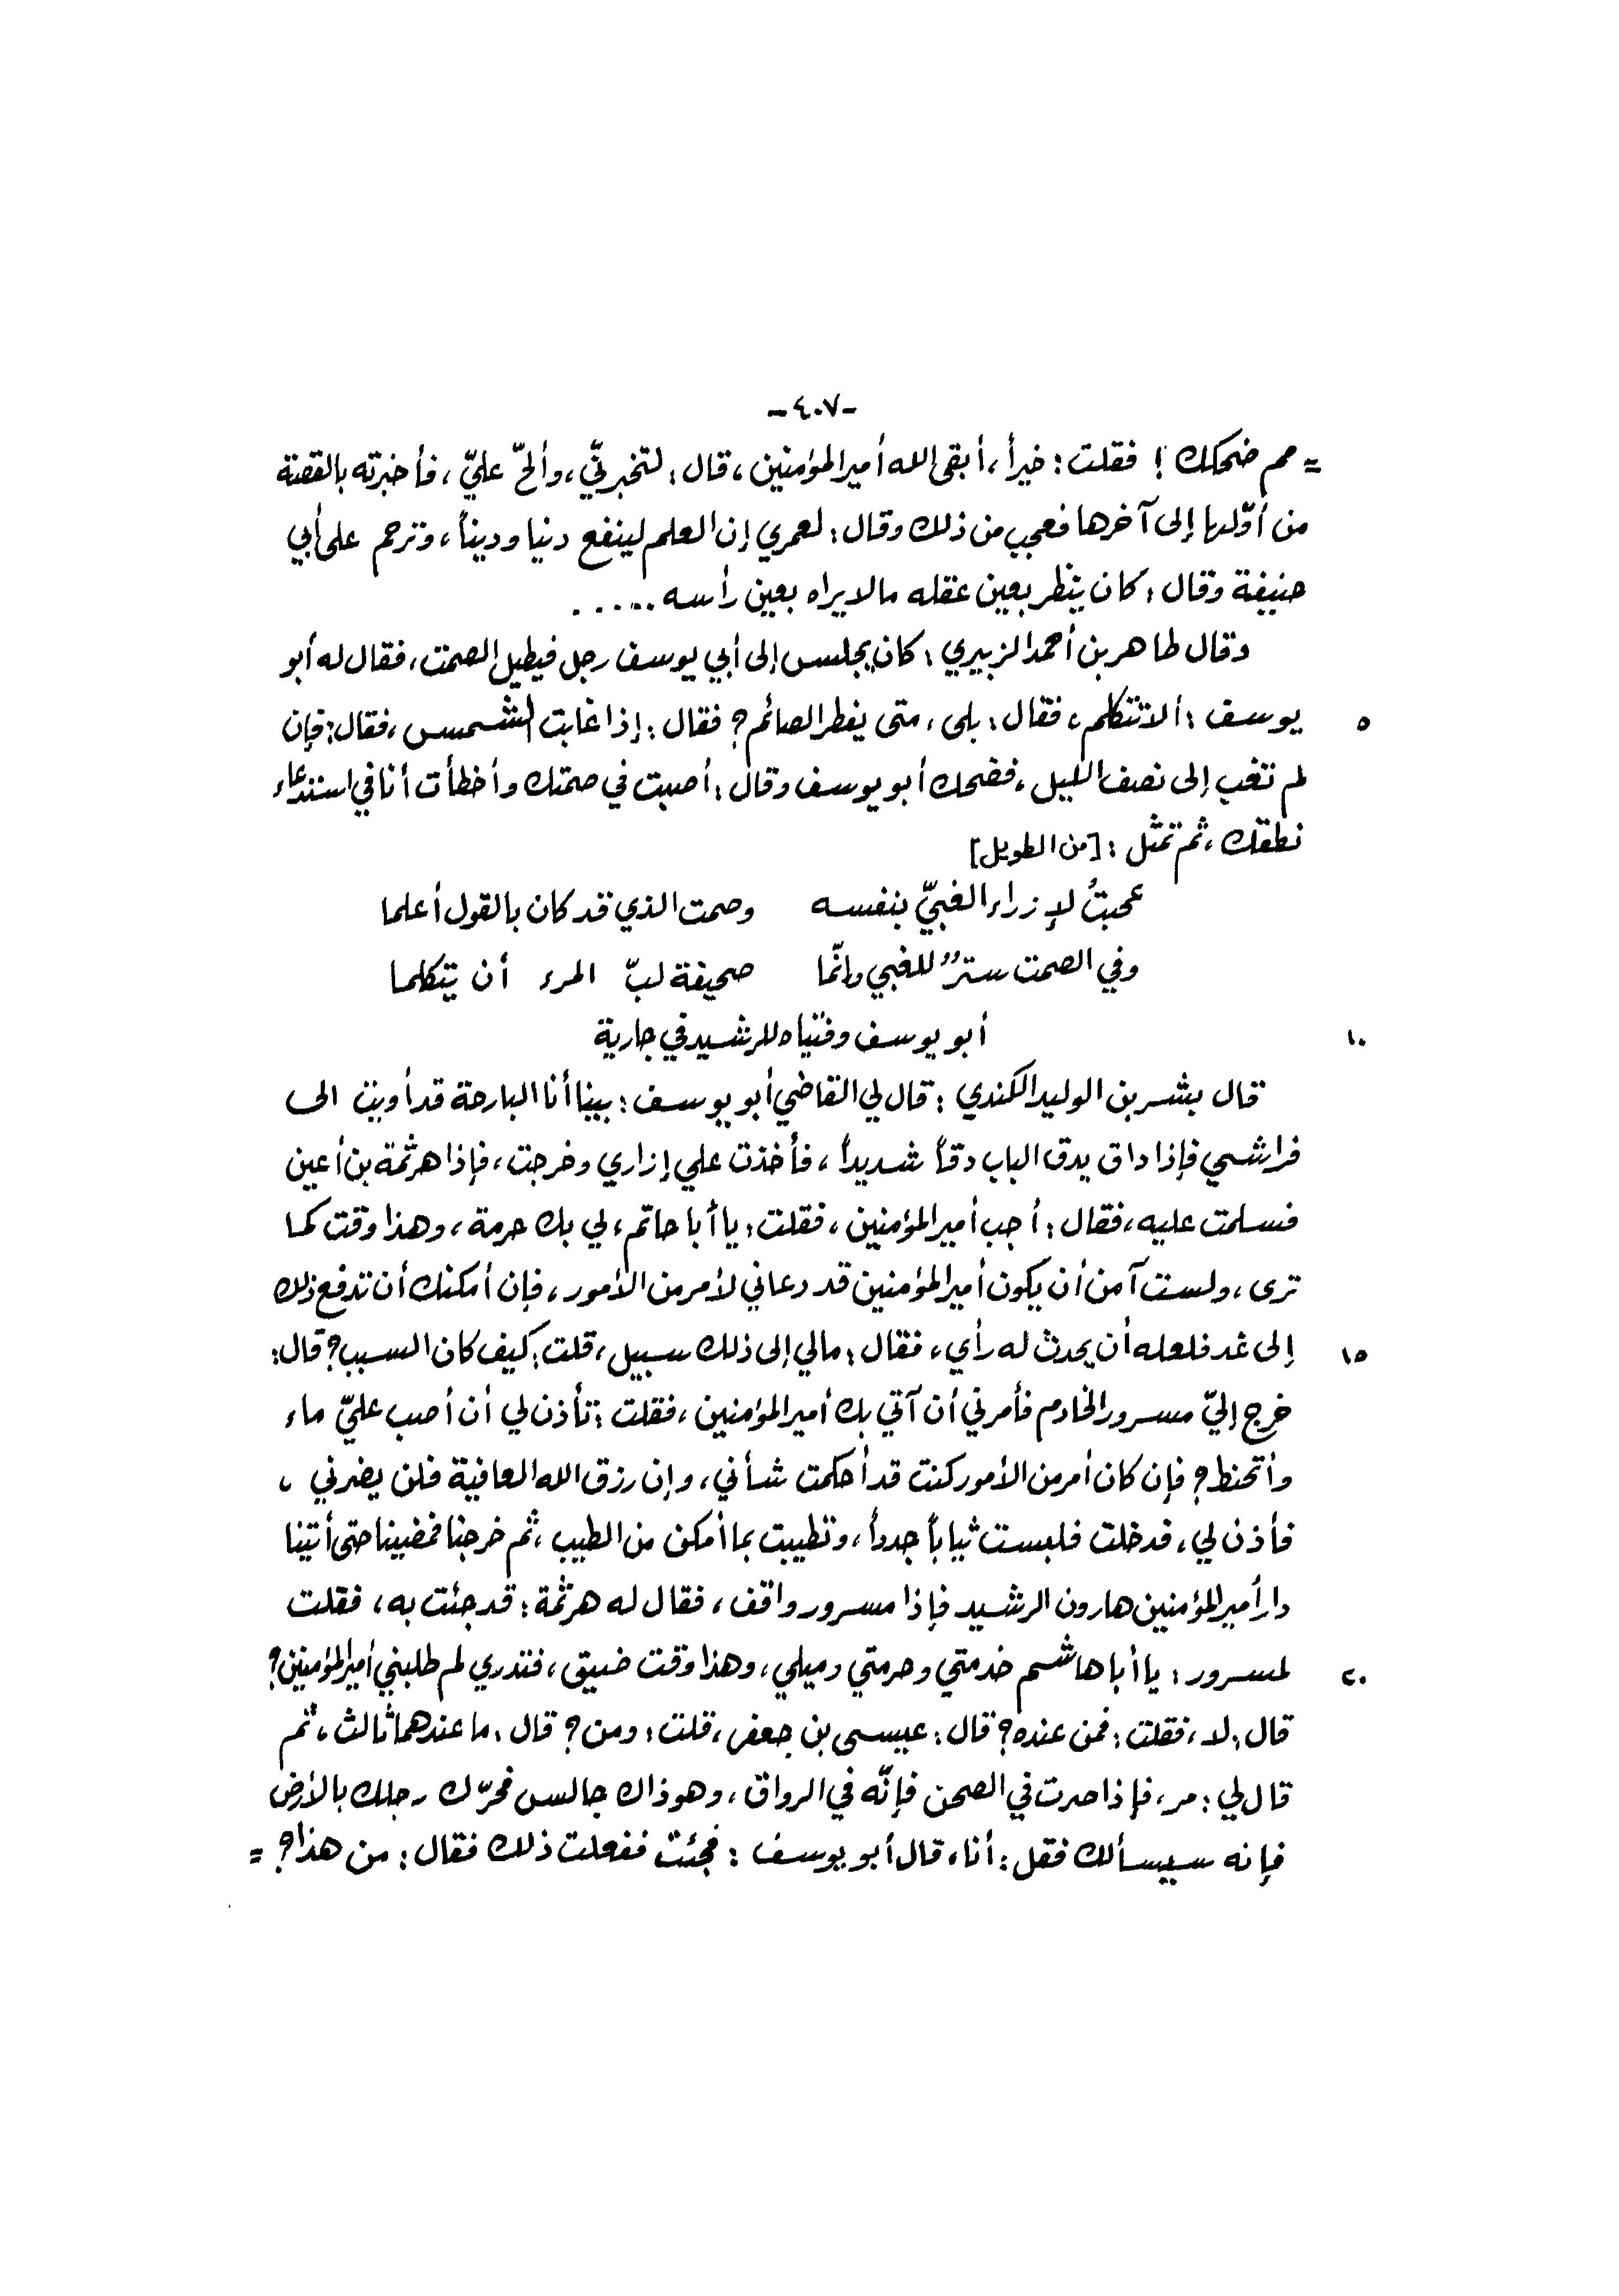 -٤٠٧-
= مم ضحكك ! فقلت : خيراً ، أبقى الله أمير المؤمنين ، قال : لتخبرنّي ، وألحّ عليّ ، فأخبرته بالقصة
من أوّلها إلى آخرها فعجب من ذلك وقال : لعمري إن العلم لينفع دنيا وديناً ، وترحم على أبي
حنيفة وقال : كان ينظر بعين عقله مالا يراه بعين رأسه .....
وقال طاهر بن أحمد الزبيري : كان يجلس إلى أبي يوسف رجل فيطيل الصمت ، فقال له أبو
٥ يوسف : ألا تتكلم ، فقال : بلى ، متى يفطر الصائم ؟ فقال : إذا غابت الشمس ، فقال : فإن
لم تغب إلى نصف الليل ، فضحك أبو يوسف وقال : أصبت في صمتك وأخطأت أنا في استدعاء
نطقك ، ثم تمثّل : [من الطويل]
عجبتُ لإزراء الغبيّ بنفسه وصمت الذي قد كان بالقول أعلما
وفي الصمت سترٌ للغبي وإنّما صحيفة لبّ المرء أن يتكلما
١٠ أبو يوسف وفتياه للرشيد في جارية
قال بشر بن الوليد الكندي : قال لي القاضي أبو يوسف : بينا أنا البارحة قد أويت الى
فراشي فإذا داق يدق الباب دقاً شديداً ، فأخذت علي إزاري وخرجت ، فإذا هرثمة بن أعين
فسلمت عليه ، فقال : أجب أمير المؤمنين ، فقلت : يا أبا حاتم ، لي بك حرمة ، وهذا وقت كما
ترى ، ولست آمن أن يكون أمير المؤمنين قد دعاني لأمر من الأمور ، فإن أمكنك أن تدفع ذلك
١٥ إلى غد فلعله أن يحدث له رأي ، فقال : مالي إلى ذلك سبيل ، قلت : كيف كان السبب ؟ قال :
خرج إليّ مسرور الخادم فأمرني أن آتي بك أمير المؤمنين ، فقلت : تأذن لي أن أصب عليّ ماء
وأتحنط ؟ فإن كان أمر من الأمور كنت قد أحكمت شأني ، وإن رزق الله العافية فلن يضرني ،
فأذن لي ، فدخلت فلبست ثياباً جدداً ، وتطيبت بما أمكن من الطيب ، ثم خرجنا فمضينا حتى أتينا
دار أمير المؤمنين هارون الرشيد فإذا مسرور واقف ، فقال له هرثمة : قد جئت به ، فقلت
٢٠ لمسرور : يا أبا هاشم خدمتي وحرمتي وميلي ، وهذا وقت ضيق ، فتدري لم طلبني أمير المؤمنين ؟
قال : لا ، فقلت : فمن عنده ؟ قال : عيسى بن جعفر ، قلت : ومن ؟ قال : ما عندهما ثالث ، ثم
قال لي : مر ، فإذا صرت في الصحن فإنّه في الرواق ، وهو ذاك جالس فحرّك رجلك بالأرض
فإنه سيسألك فقل : أنا ، قال أبو يوسف : فجئت ففعلت ذلك فقال : من هذا ؟ =